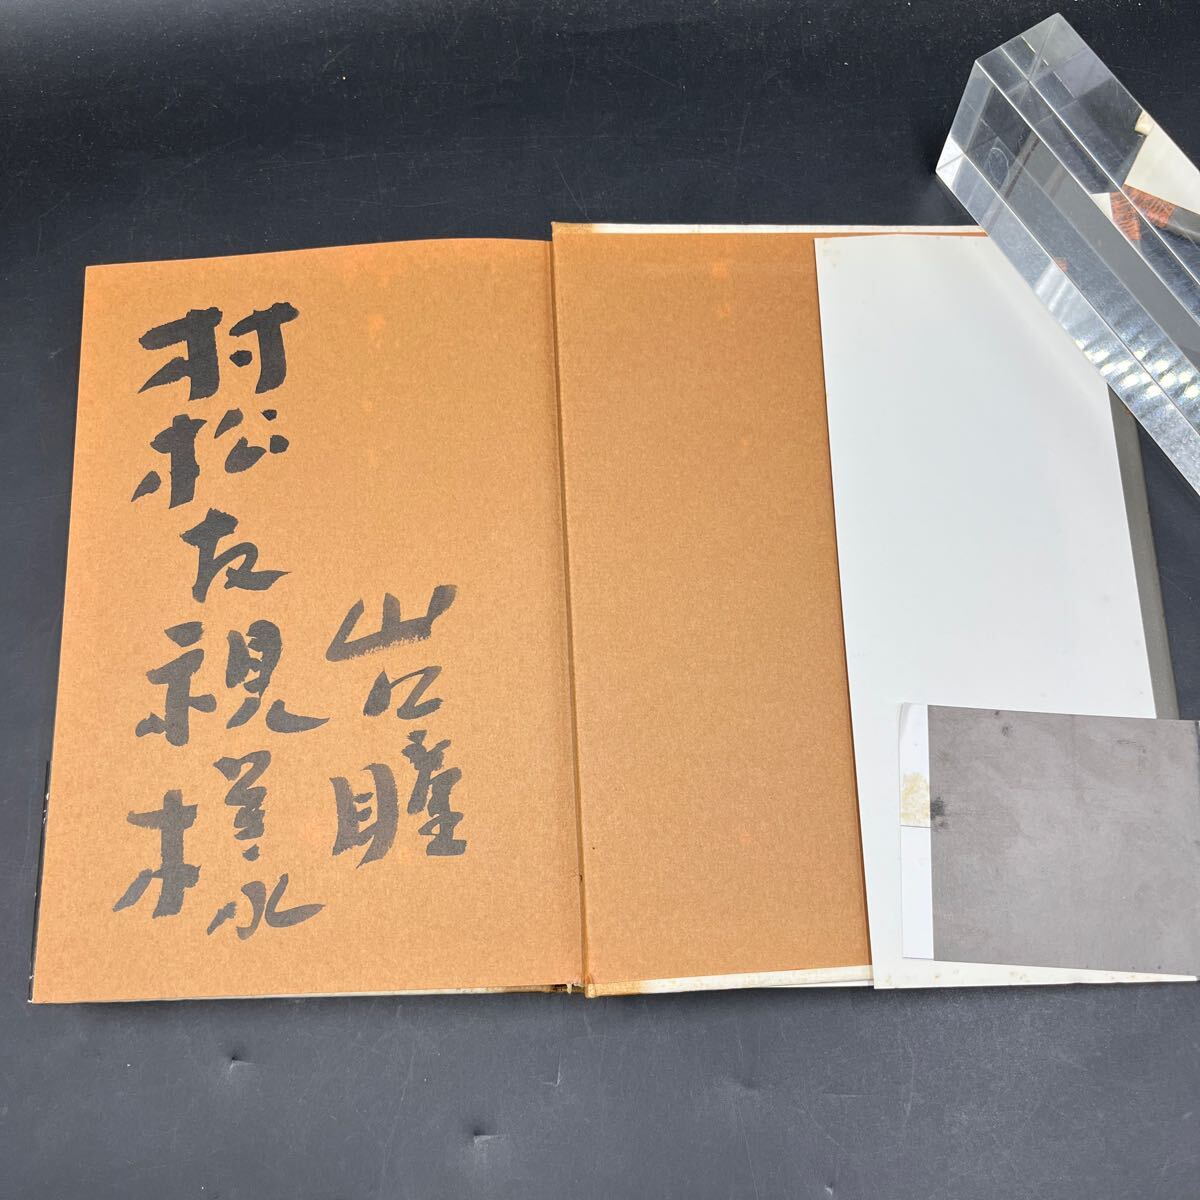 山口瞳
村松友視様